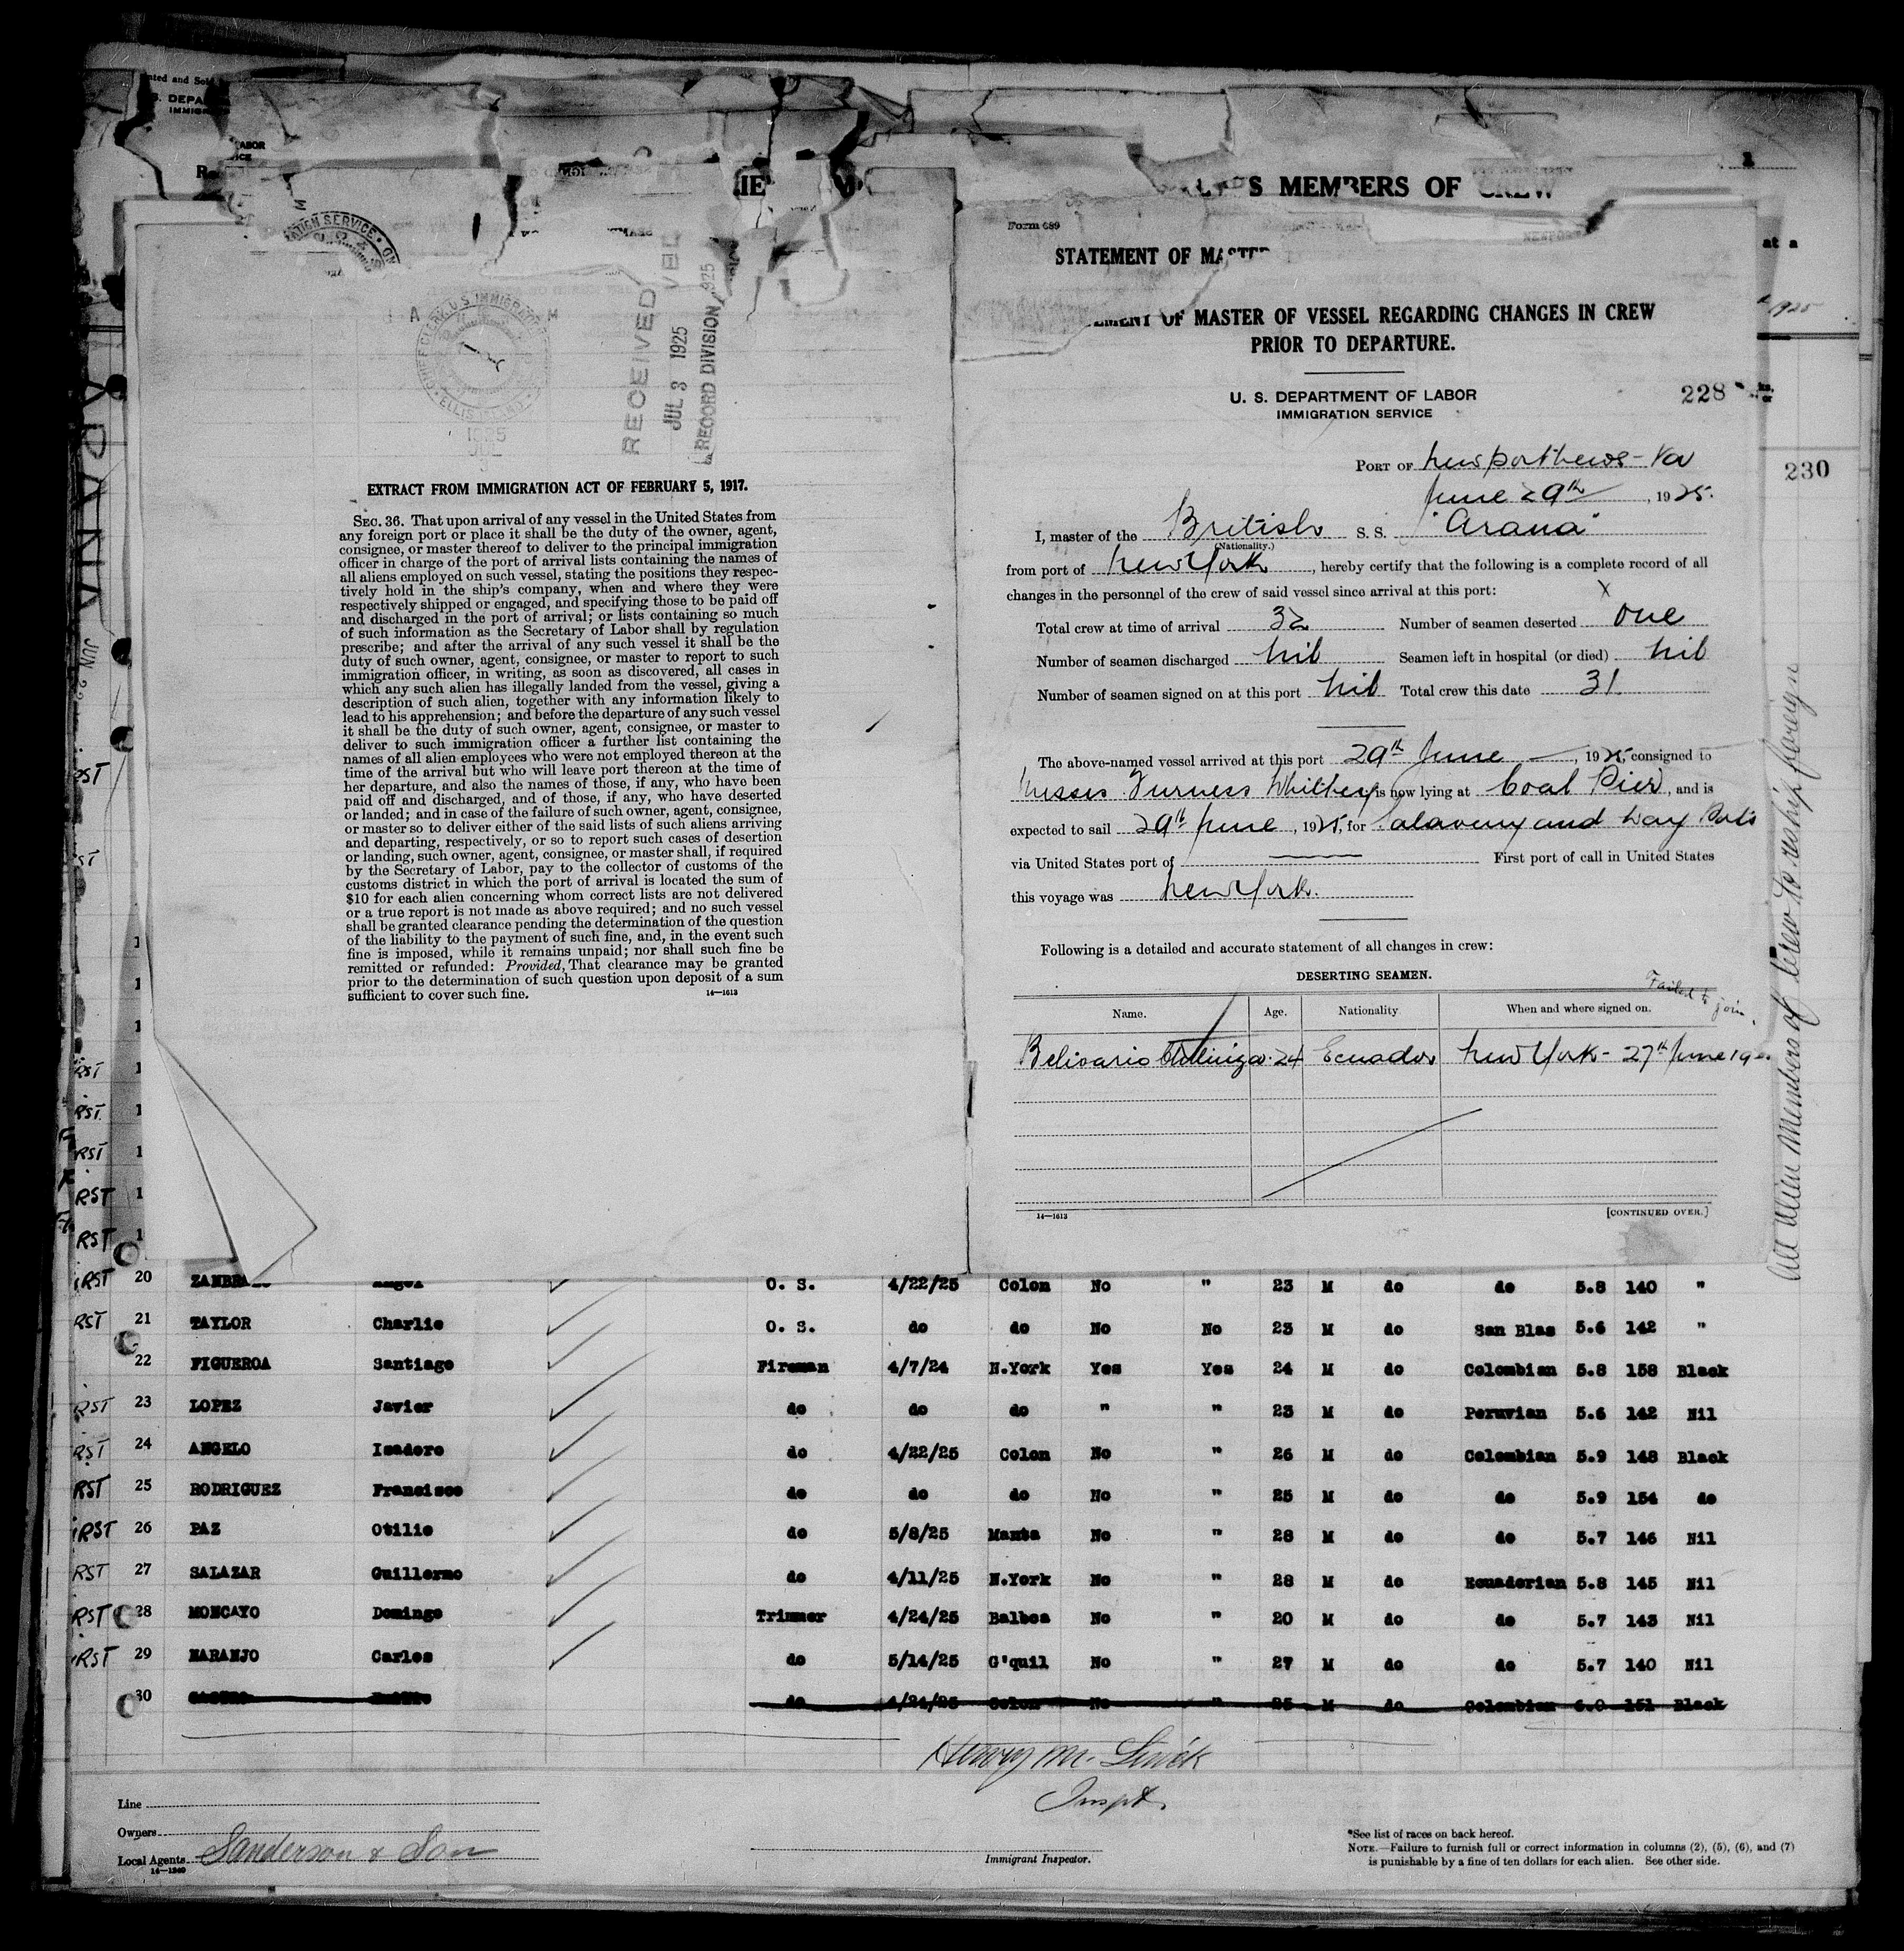 LABOR
MEMBERS OF CREW
at a
1925
ARANA
RECEIVED
JUL 3 1925
RECORD DIVISION
ELLIS ISLAND
1925
EXTRACT FROM IMMIGRATION ACT OF FEBRUARY 5, 1917.
SEC. 36. That upon arrival of any vessel in the United States from
any foreign port or place it shall be the duty of the owner, agent,
consignee, or master thereof to deliver to the principal immigration
officer in charge of the port of arrival lists containing the names of
all aliens employed on such vessel, stating the positions they respec-
tively hold in the ship's company, when and where they were
respectively shipped or engaged, and specifying those to be paid off
and discharged in the port of arrival; or lists containing so much
of such information as the Secretary of Labor shall by regulation
prescribe; and after the arrival of any such vessel it shall be the
duty of such owner, agent, consignee, or master to report to such
immigration officer, in writing, as soon as discovered, all cases in
which any such alien has illegally landed from the vessel, giving a
description of such alien, together with any information likely to
lead to his apprehension; and before the departure of any such vessel
it shall be the duty of such owner, agent, consignee, or master to
deliver to such immigration officer a further list containing the
names of all alien employees who were not employed thereon at the
time of the arrival but who will leave port thereon at the time of
her departure, and also the names of those, if any, who have been
paid off and discharged, and of those, if any, who have deserted
or landed; and in case of the failure of such owner, agent, consignee,
or master so to deliver either of the said lists of such aliens arriving
and departing, respectively, or so to report such cases of desertion
or landing, such owner, agent, consignee, or master shall, if required
by the Secretary of Labor, pay to the collector of customs of the
customs district in which the port of arrival is located the sum of
$10 for each alien concerning whom correct lists are not delivered
or a true report is not made as above required; and no such vessel
shall be granted clearance pending the determination of the question
of the liability to the payment of such fine, and, in the event such
fine is imposed, while it remains unpaid; nor shall such fine be
remitted or refunded: Provided, That clearance may be granted
prior to the determination of such question upon deposit of a sum
sufficient to cover such fine. 14—1613
Form 689
STATEMENT OF
OF MASTER OF VESSEL REGARDING CHANGES IN CREW
PRIOR TO DEPARTURE.
U. S. DEPARTMENT OF LABOR
IMMIGRATION SERVICE
228
230
PORT OF Newport News - Va
June 29th, 1925.
I, master of the British S. S. "Arana"
(Nationality.)
from port of New York, hereby certify that the following is a complete record of all
changes in the personnel of the crew of said vessel since arrival at this port:
Total crew at time of arrival 32 Number of seamen deserted One
Number of seamen discharged Nil Seamen left in hospital (or died) Nil
Number of seamen signed on at this port Nil Total crew this date 31.
The above-named vessel arrived at this port 29th June, 1925, consigned to
Messrs Furness Whithy is now lying at Coal Pier, and is
expected to sail 29th June, 1925, for and way Ports
via United States port of First port of call in United States
this voyage was New York.
Following is a detailed and accurate statement of all changes in crew:
DESERTING SEAMEN.
Failed to join.
Name. Age. Nationality When and where signed on.
Belisario 24 Ecuador New York - 27th June 19
14—1613 [CONTINUED OVER.]
All Alien Members of Crew to reship foreign
RST 20 Angel O. S. 4/22/25 Colon No " 23 M do do 5.8 140 "
RST 21 TAYLOR Charlie O. S. do do No No 23 M do San Blas 5.6 142 "
22 FIGUEROA Santiago Fireman 4/7/24 N.York Yes Yes 24 M do Colombian 5.8 158 Black
RST 23 LOPEZ Javier do do do " " 23 M do Peruvian 5.6 142 Nil
RST 24 ANGELO Isadore do 4/22/25 Colon No " 26 M do Colombian 5.9 148 Black
RST 25 RODRIGUEZ Francisco do do do No " 25 M do do 5.9 154 do
RST 26 PAZ Otilio do 5/8/25 Manta No " 28 M do do 5.7 146 Nil
RST 27 SALAZAR Guillermo do 4/11/25 N.York No " 28 M do Ecuadorian 5.8 145 Nil
RST 28 MONCAYO Domingo Trimmer 4/24/25 Balboa No " 20 M do do 5.7 143 Nil
RST 29 NARANJO Carlos do 5/14/25 G'quil No " 27 M do do 5.7 140 Nil
30 do 4/24/25 Colon No " 25 M do Colombian 6.0 151 Black
Henry M.
Inspt.
Line
Owners
Local Agents Sanderson & Son
14—1240
Immigrant Inspector.
*See list of races on back hereof.
NOTE.—Failure to furnish full or correct information in columns (2), (5), (6), and (7)
is punishable by a fine of ten dollars for each alien. See other side.